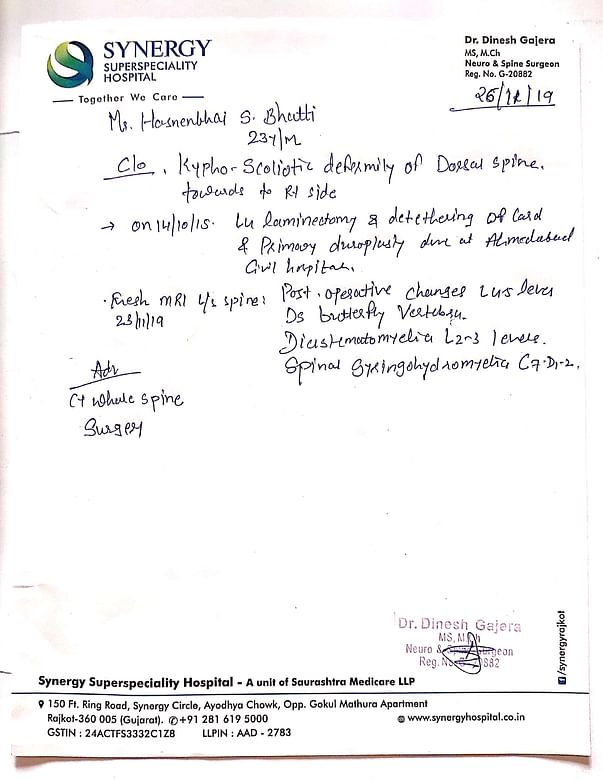 SYNERGY
SUPERSPECIALITY
HOSPITAL
Together We Care
Dr. Dinesh Gajera
MS, M.Ch
Neuro & Spine Surgeon
Reg. No. G-20882
Mr. Hasnenbhai S. Bhatti
23y/M
C/o . Kypho-Scoliotic deformity of Dorsal spine.
towards to Rt side
→ on 14/10/15. laminectomy & detethering of Cord
& Primary duroplasty done at Ahmedabad
Civil hospital.
Fresh MRI L/s spine: Post-operative changes level
23/11/19 D5 butterfly Vertebra.
Diastematomyelia L2-3 levels.
Spinal Syringohydromyelia C7-D1-2.
Adv
CT whole spine
Surgery
Dr. Dinesh Gajera
MS, M.Ch
Neuro & Spine Surgeon
Reg. No. G-20882
/synergyrajkot
Synergy Superspeciality Hospital - A unit of Saurashtra Medicare LLP
150 Ft. Ring Road, Synergy Circle, Ayodhya Chowk, Opp. Gokul Mathura Apartment
Rajkot-360 005 (Gujarat). +91 281 619 5000
www.synergyhospital.co.in
GSTIN : 24ACTFS3332C1Z8 LLPIN : AAD - 2783